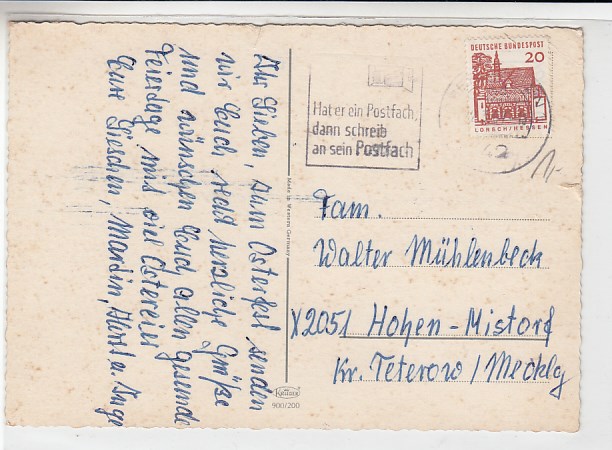 Ihr Lieben, zum Osterfest senden
wir Euch recht herzliche Grüße
und wünschen Euch allen gesunde
Feiertage mit viel Ostereier
Eure Lieschen, Martin, Horst u. Inge
Made in Western Germany
Krüger
900/200
Hat er ein Postfach,
dann schreib
an sein Postfach
DEUTSCHE BUNDESPOST
20
LORSCH/HESSEN
2
Fam.
Walter Mühlenbeck
X2051 Hohen-Mistorf
Kr. Teterow / Mecklg